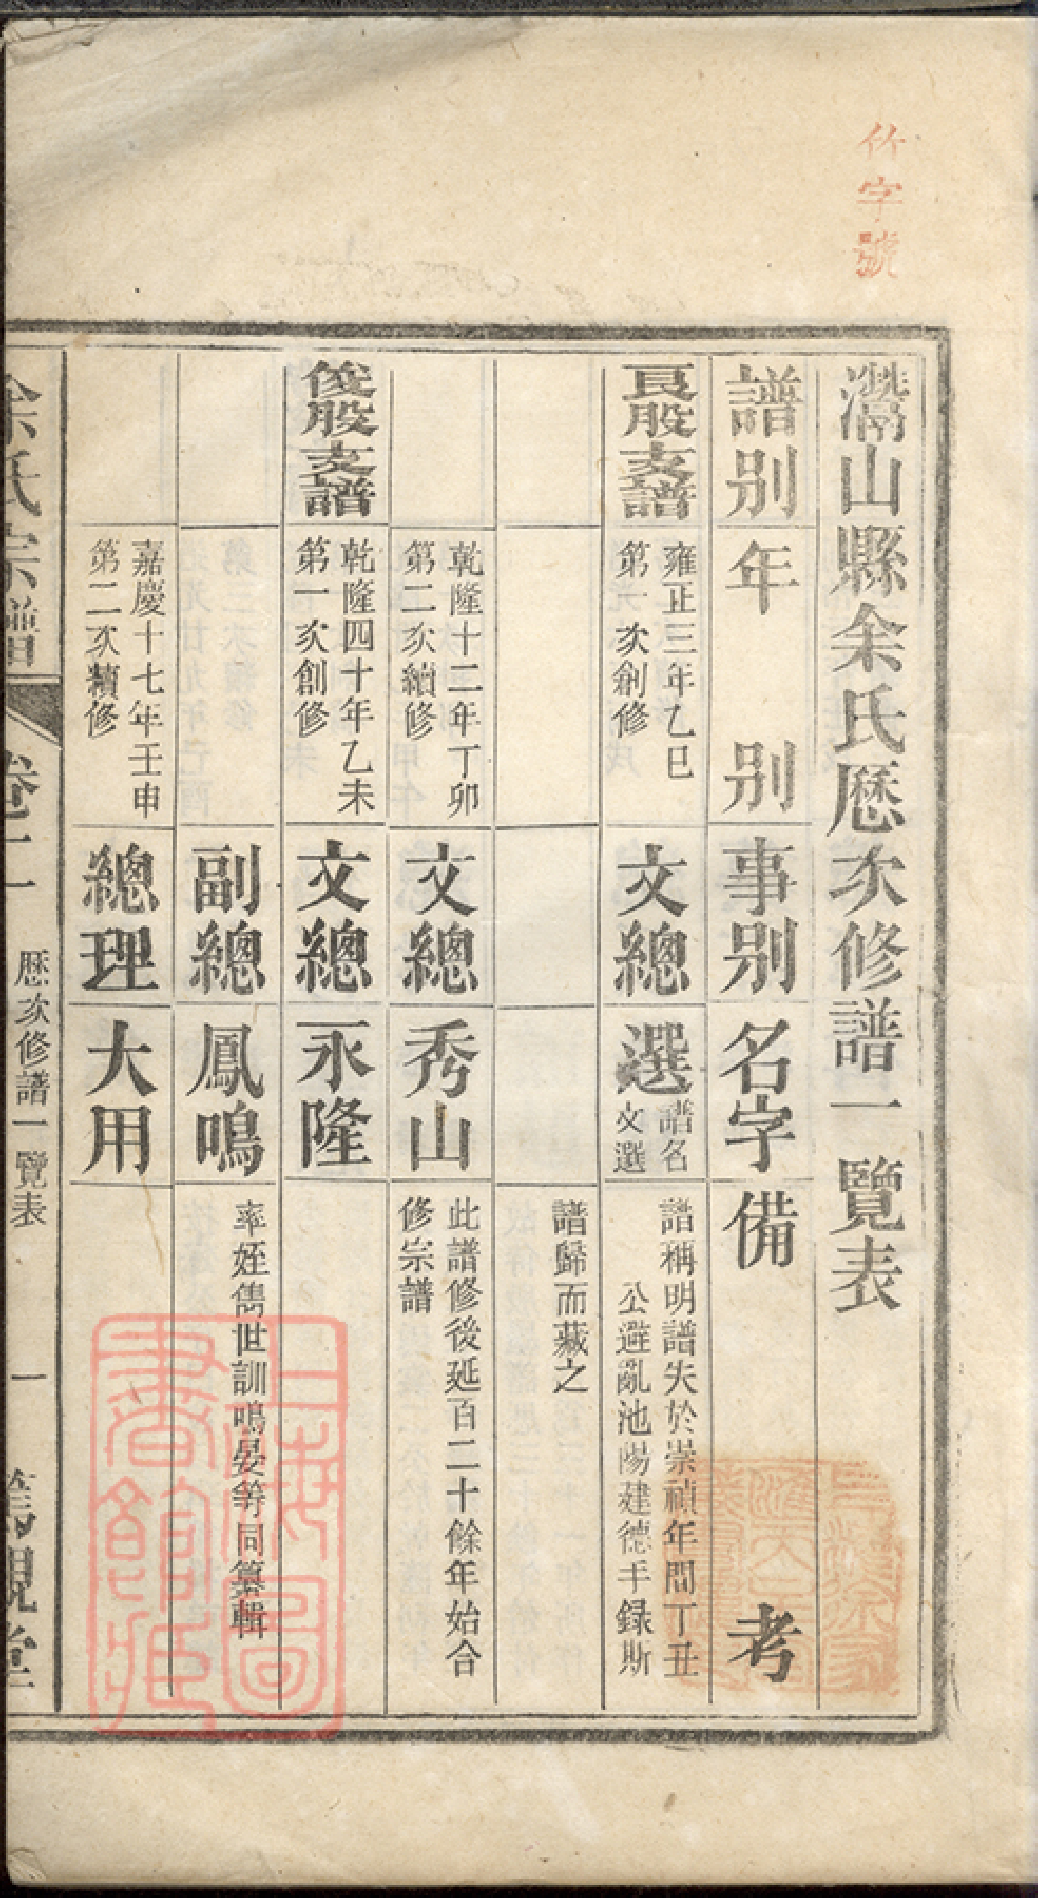 竹字號
灊山縣余氏歷次修譜一覽表
譜別
年別
事別
名字
備考
良股支譜
雍正三年乙巳
第一次創修
文總
選
譜名
文選
譜稱明譜失於崇禎年間丁丑
公避亂池陽建德手録斯
譜歸而藏之
乾隆十二年丁卯
第二次續修
文總
秀山
此譜修後延百二十餘年始合
修宗譜
俊股支譜
乾隆四十年乙未
第一次創修
文總
永隆
副總
鳳鳴
率姪儁世訓鳴晏等同纂輯
嘉慶十七年壬申
第二次續修
總理
大用
余氏宗譜
卷一
歷次修譜一覽表
一
上海圖
書館藏